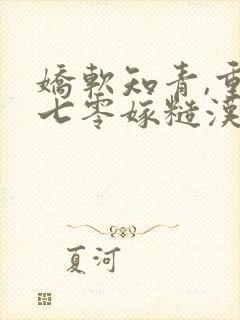 嬌軟知青,重
七零嫁糙漢
夏河